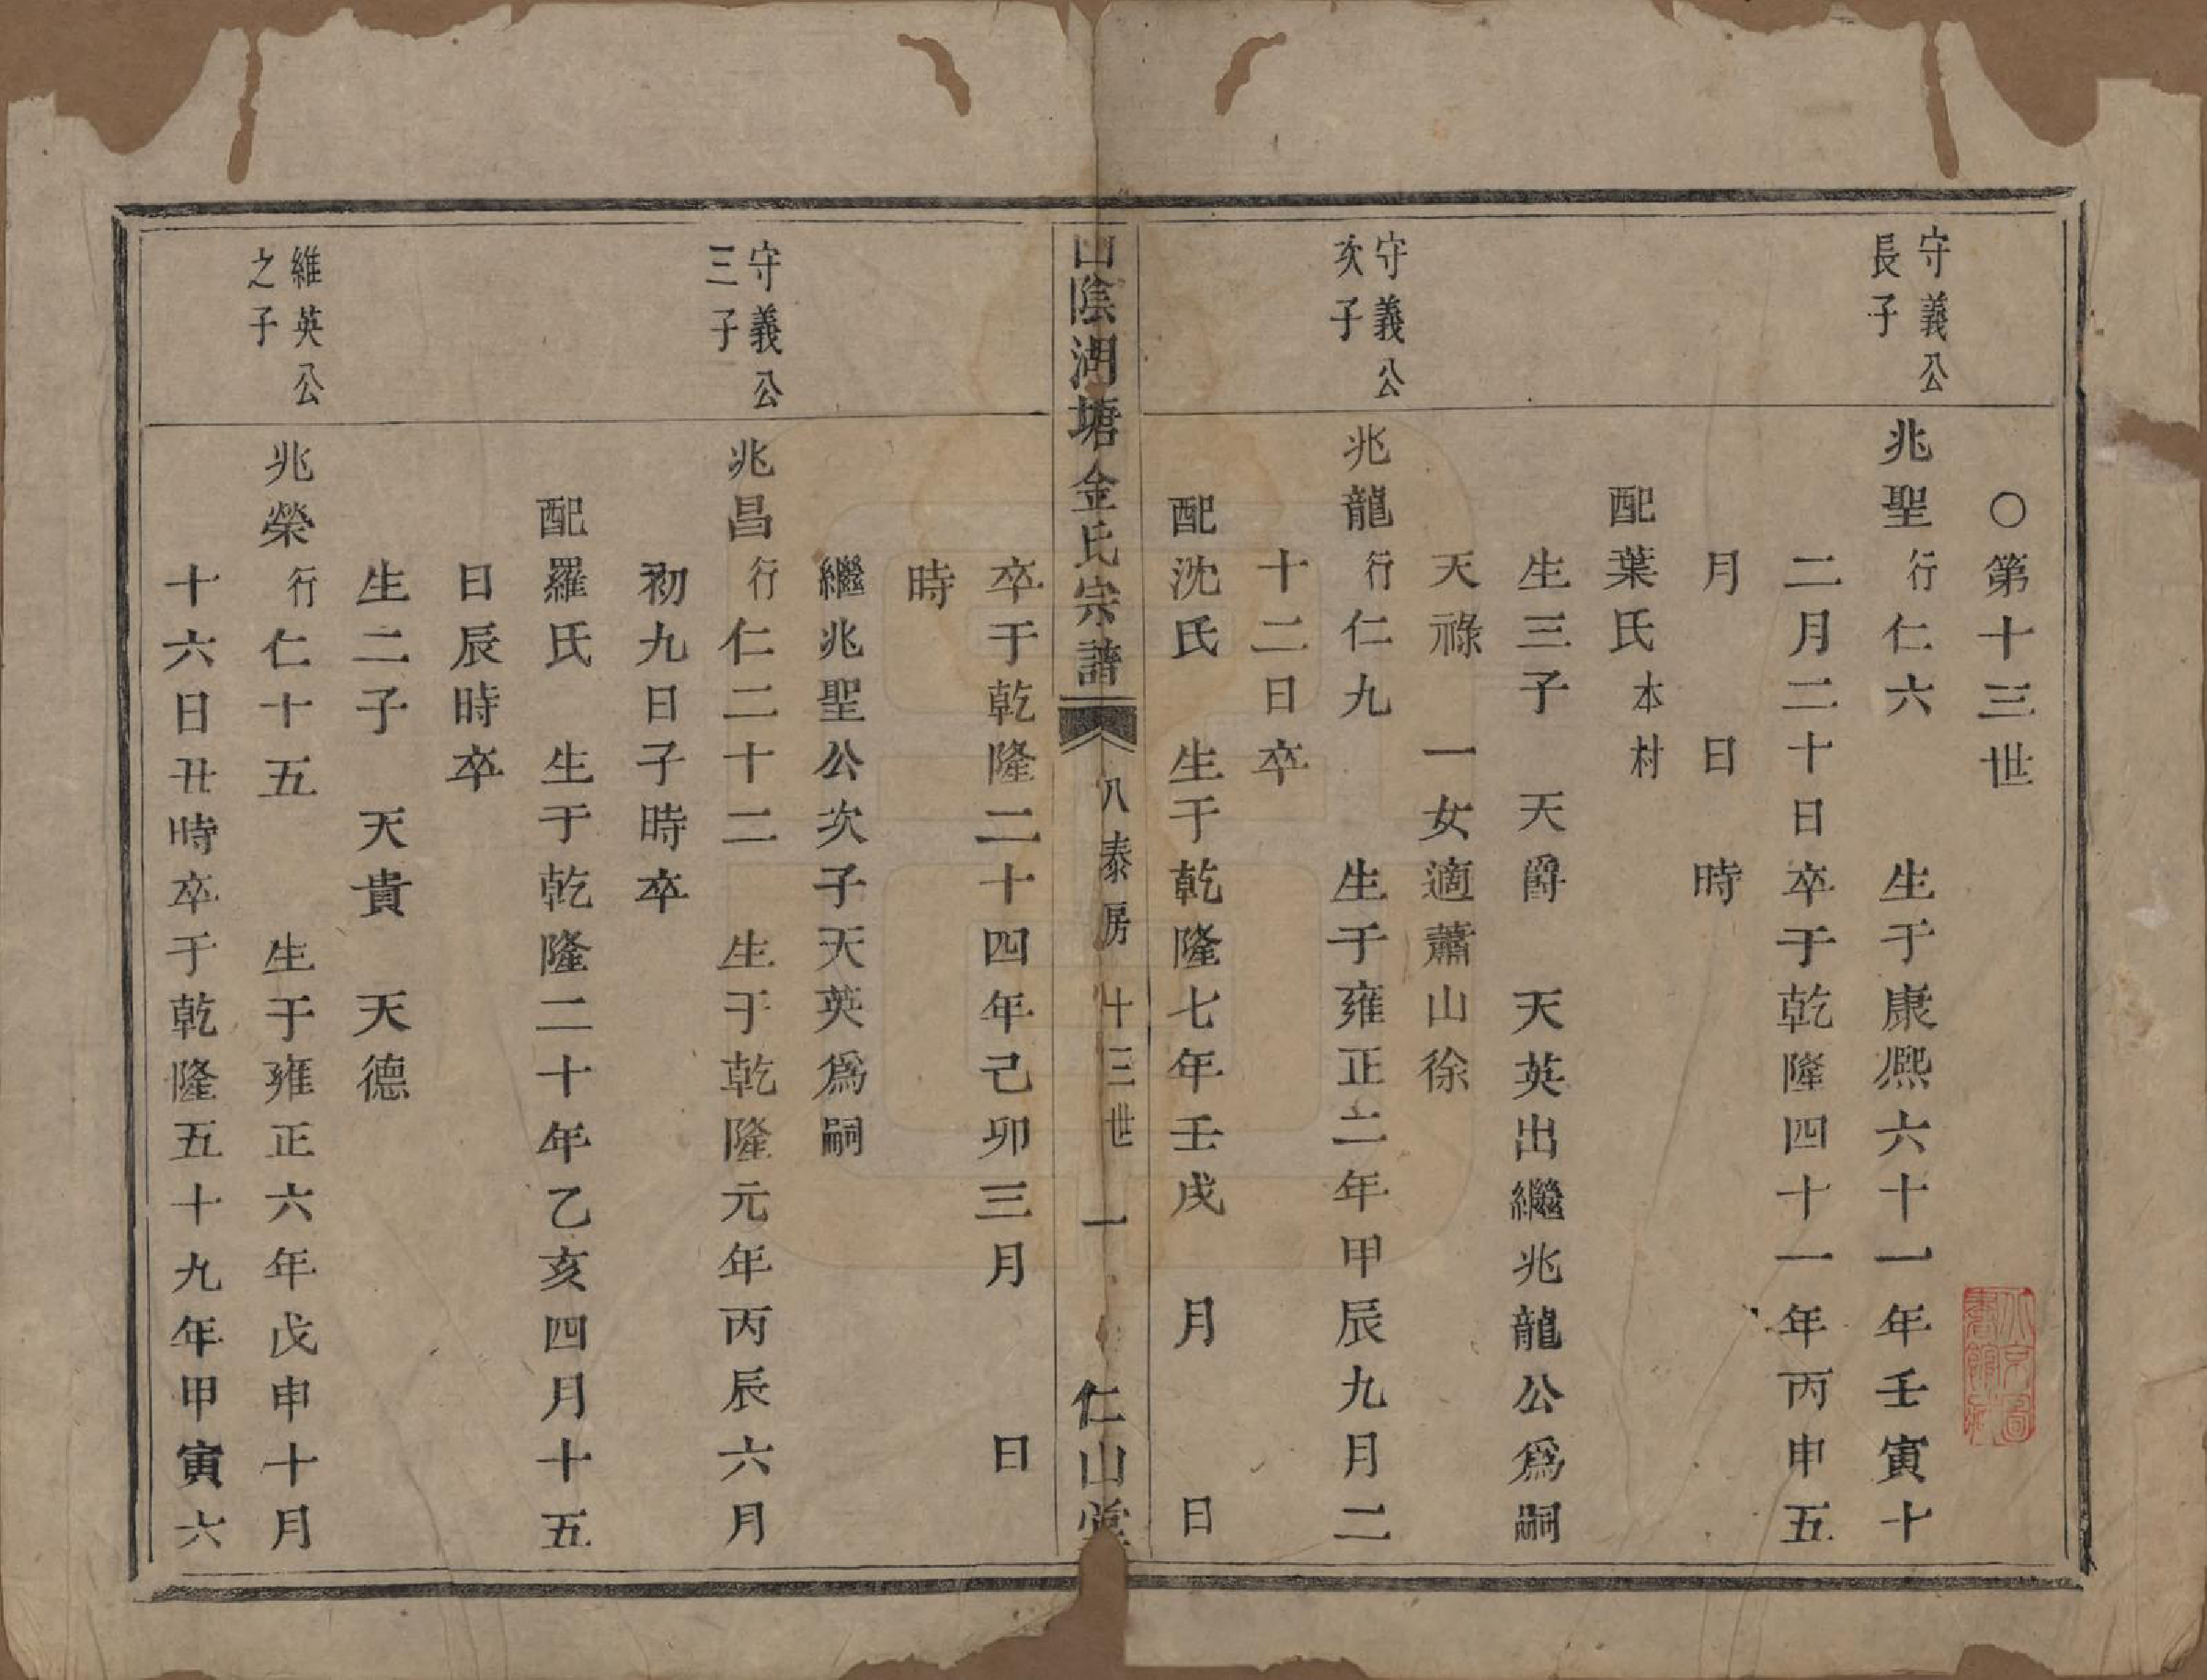 ○第十三世
守義公
長子
兆聖行仁六 生于康熈六十一年壬寅十
二月二十日卒于乾隆四十一年丙申五
月 日 時
配葉氏本村
生三子 天爵 天英出繼兆龍公爲嗣
天祿 一女適蕭山徐
守義公
次子
兆龍行仁九 生于雍正二年甲辰九月二
十二日卒
配沈氏 生于乾隆七年壬戌 月 日
山陰湖塘金氏宗譜 八泰房 十三世 一 仁山堂
卒于乾隆二十四年己卯三月 日
時
繼兆聖公次子天英爲嗣
守義公
三子
兆昌行仁二十二 生于乾隆元年丙辰六月
初九日子時卒
配羅氏 生于乾隆二十年乙亥四月十五
日辰時卒
生二子 天貴 天德
維英公
之子
兆榮行仁十五 生于雍正六年戊申十月
十六日丑時卒于乾隆五十九年甲寅六